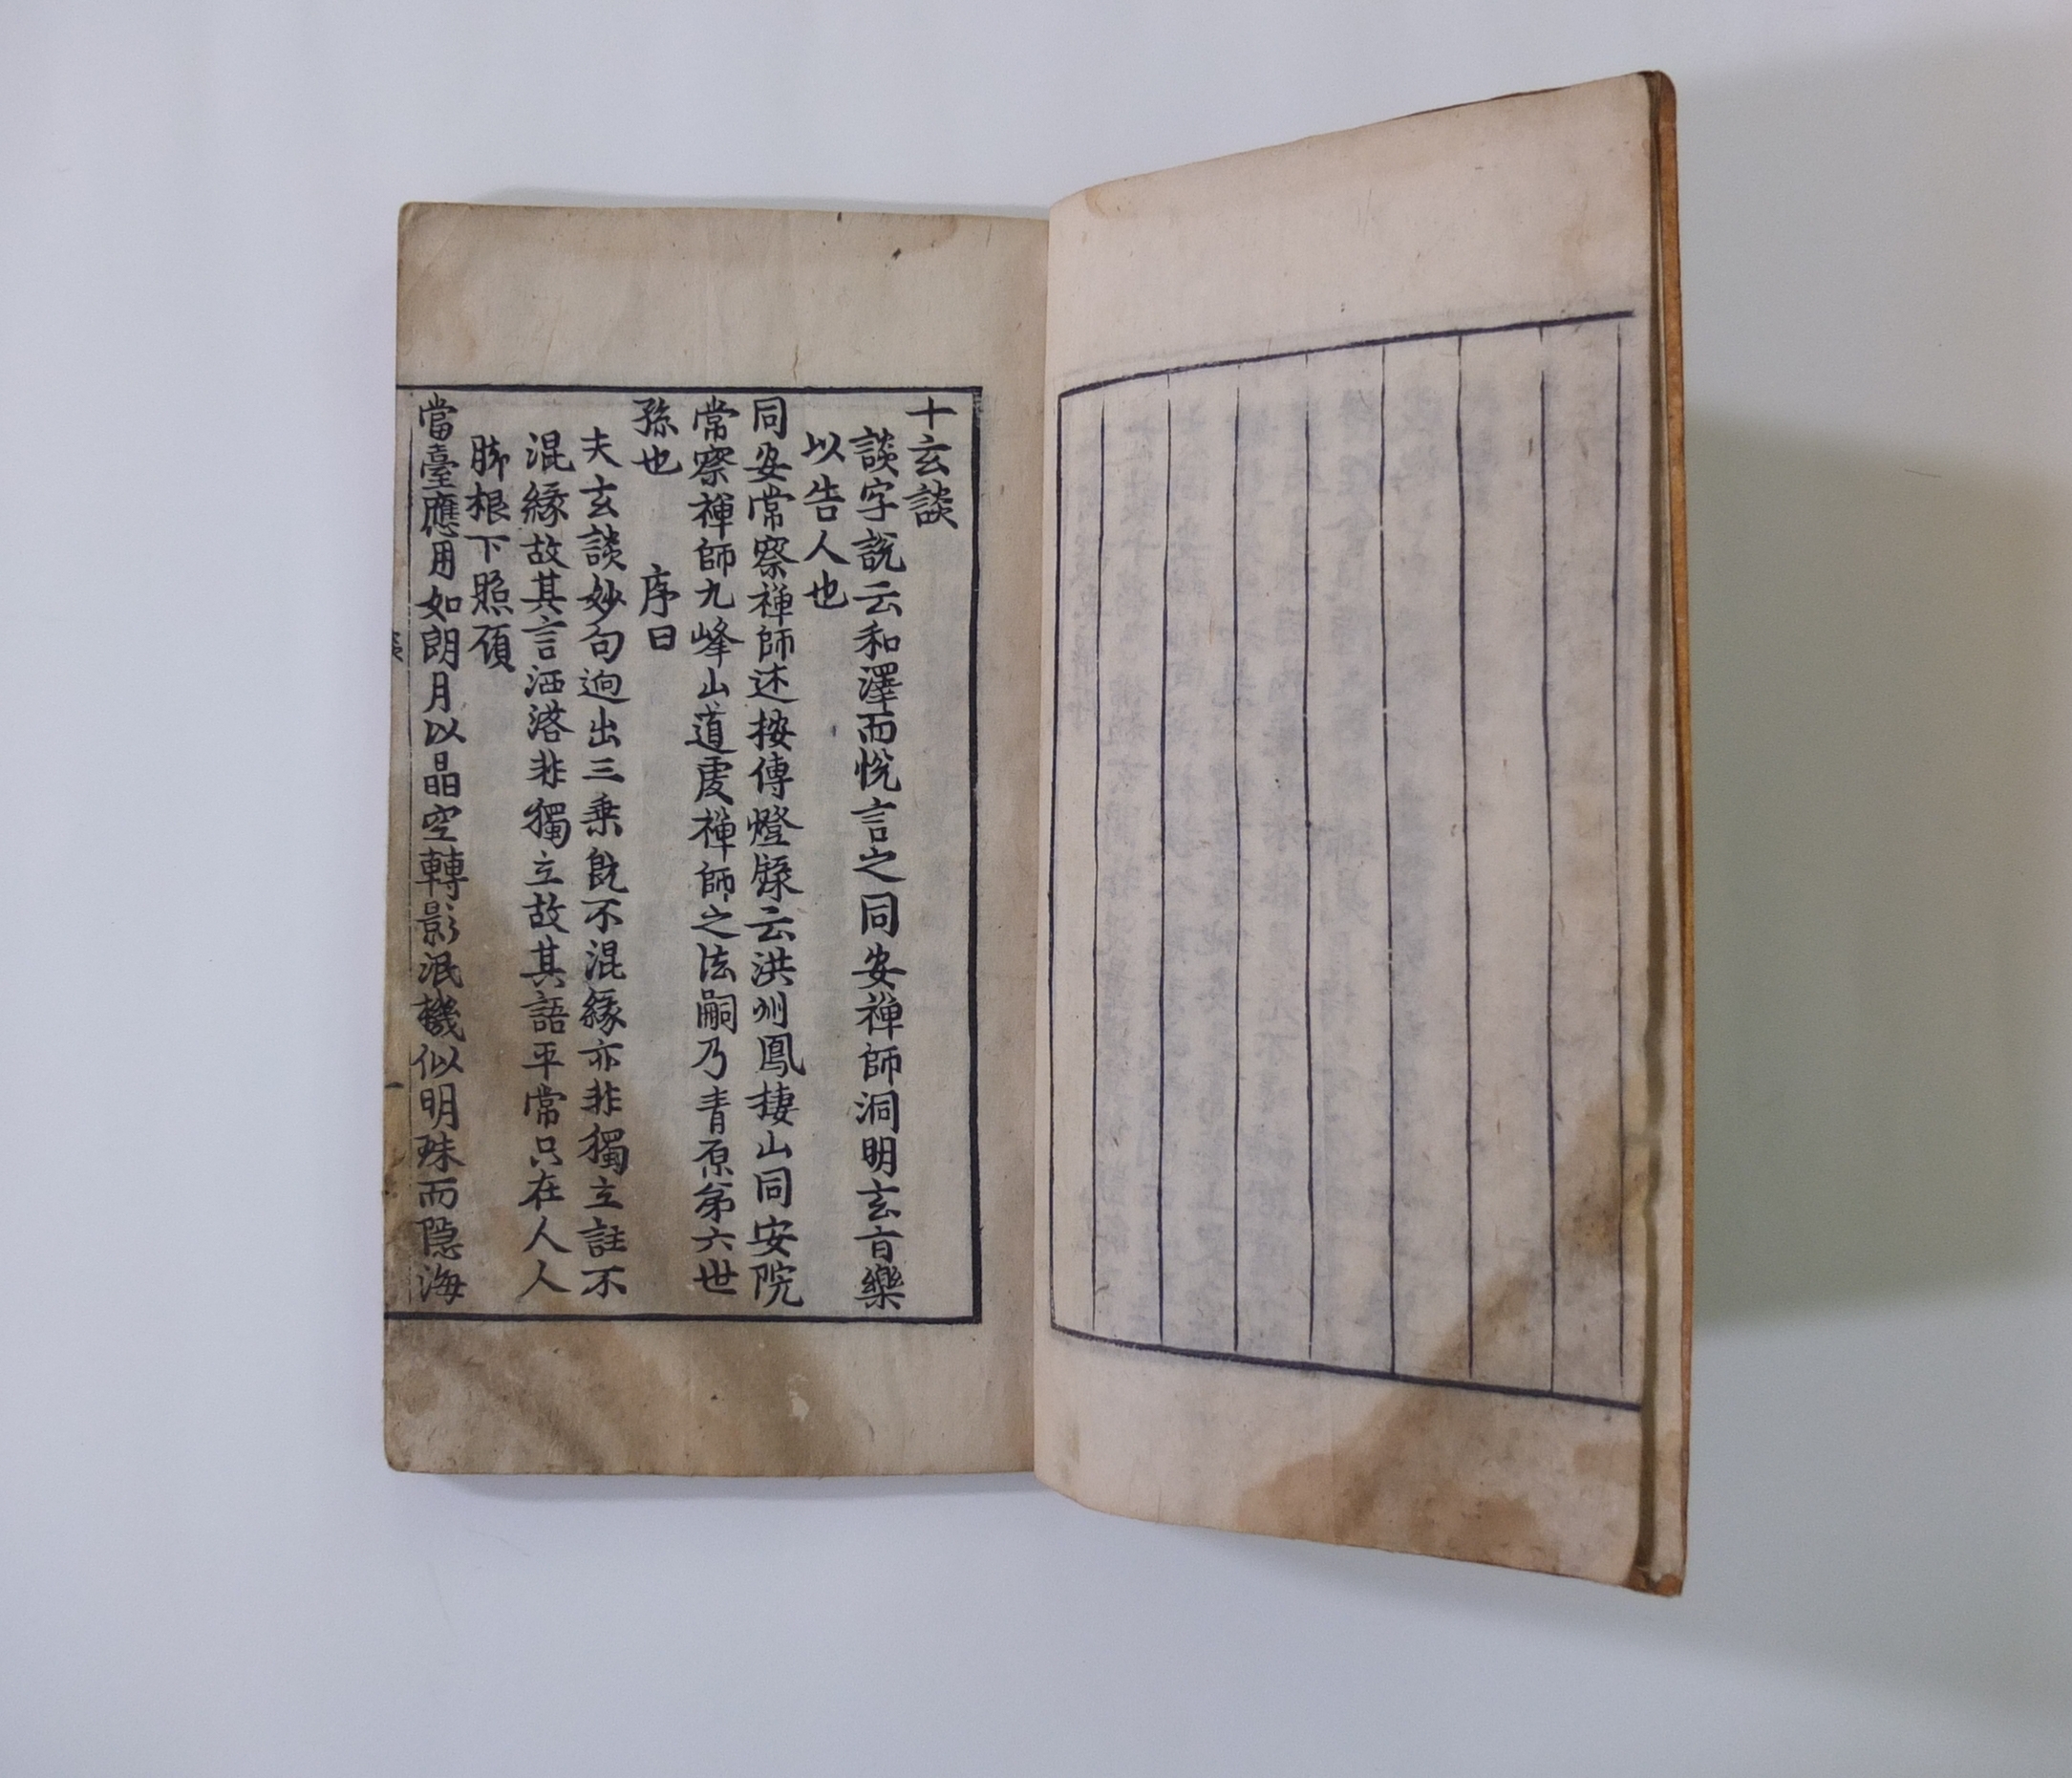 十玄談
談字說云和澤而悅言之同安禅師洞明玄旨樂
以告人也
同安常察禅師述按傳燈録云洪州鳳棲山同安院
常察禅師九峰山道虔禅師之法嗣乃青原第六世
孫也 序曰
夫玄談妙句逈出三乗旣不混緣亦非獨立註不
混緣故其言洒落非獨立故其語平常只在人人
脚根下照顧
當臺應用如朗月以晶空轉影泯機似明珠而隐海